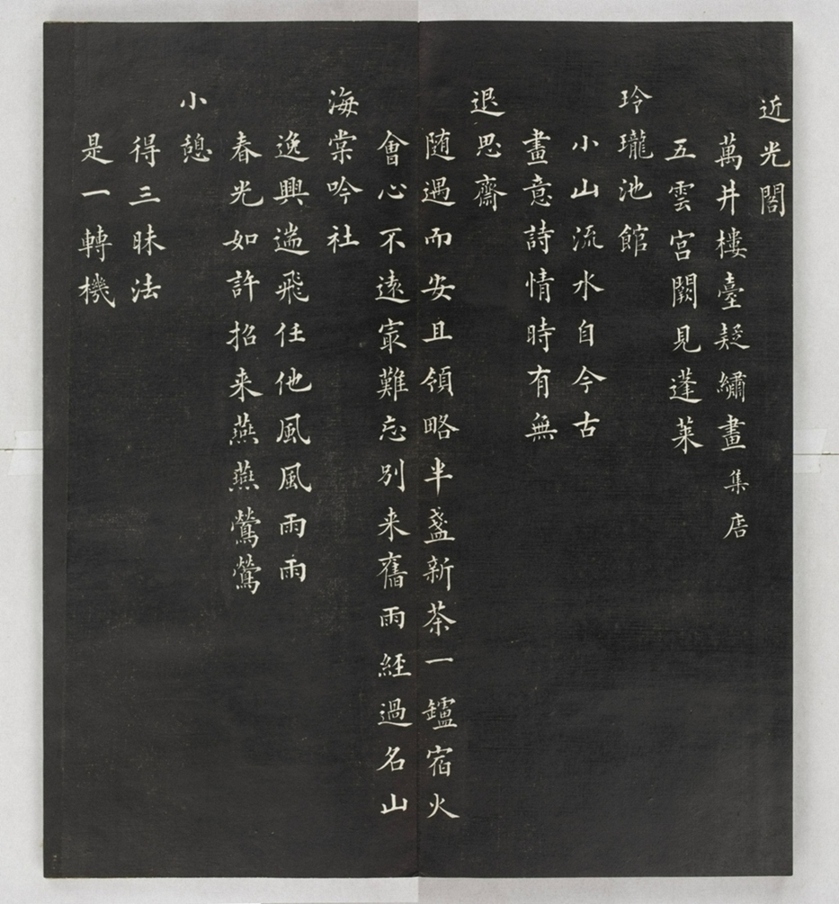 近光閣
萬井樓臺疑繡畫集唐
五雲宮闕見蓬萊
玲瓏池館
小山流水自今古
畫意詩情時有無
退思齋
随遇而安且領略半盞新茶一鑪宿火
會心不遠寂難忘別来舊雨經過名山
海棠吟社
逸興遄飛任他風風雨雨
春光如許招来燕燕鶯鶯
小憩
得三昧法
是一轉機